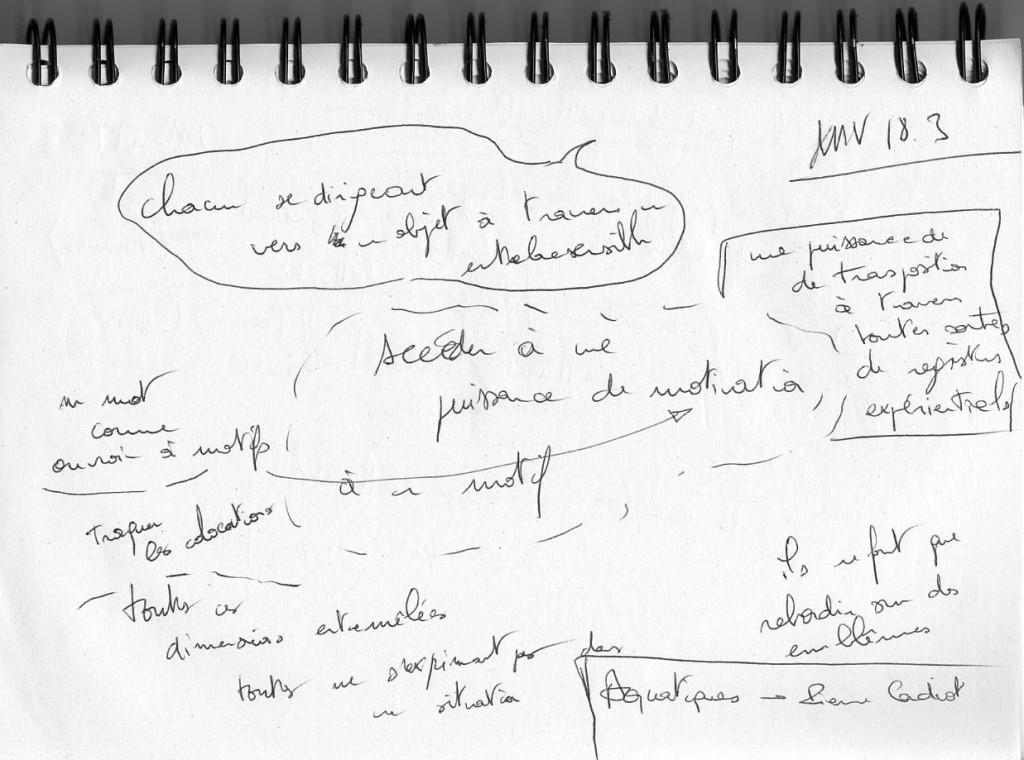 18.3
chacun se dirigeant
vers un objet à travers un
une puissance de
de traspostion
à travers
toutes sortes
de registres
expérientiels
Accéder à une
puissance de motivation
à un motif
un mot
comme
ouvroir à motifs
Traquer
les colocations
toutes ces
dimensions entremêlées
toutes ne s'exprimant pas dans
une situation
ils ne font que
rebondir sur des
emblèmes
Aquatiques → Pierre Cadiot